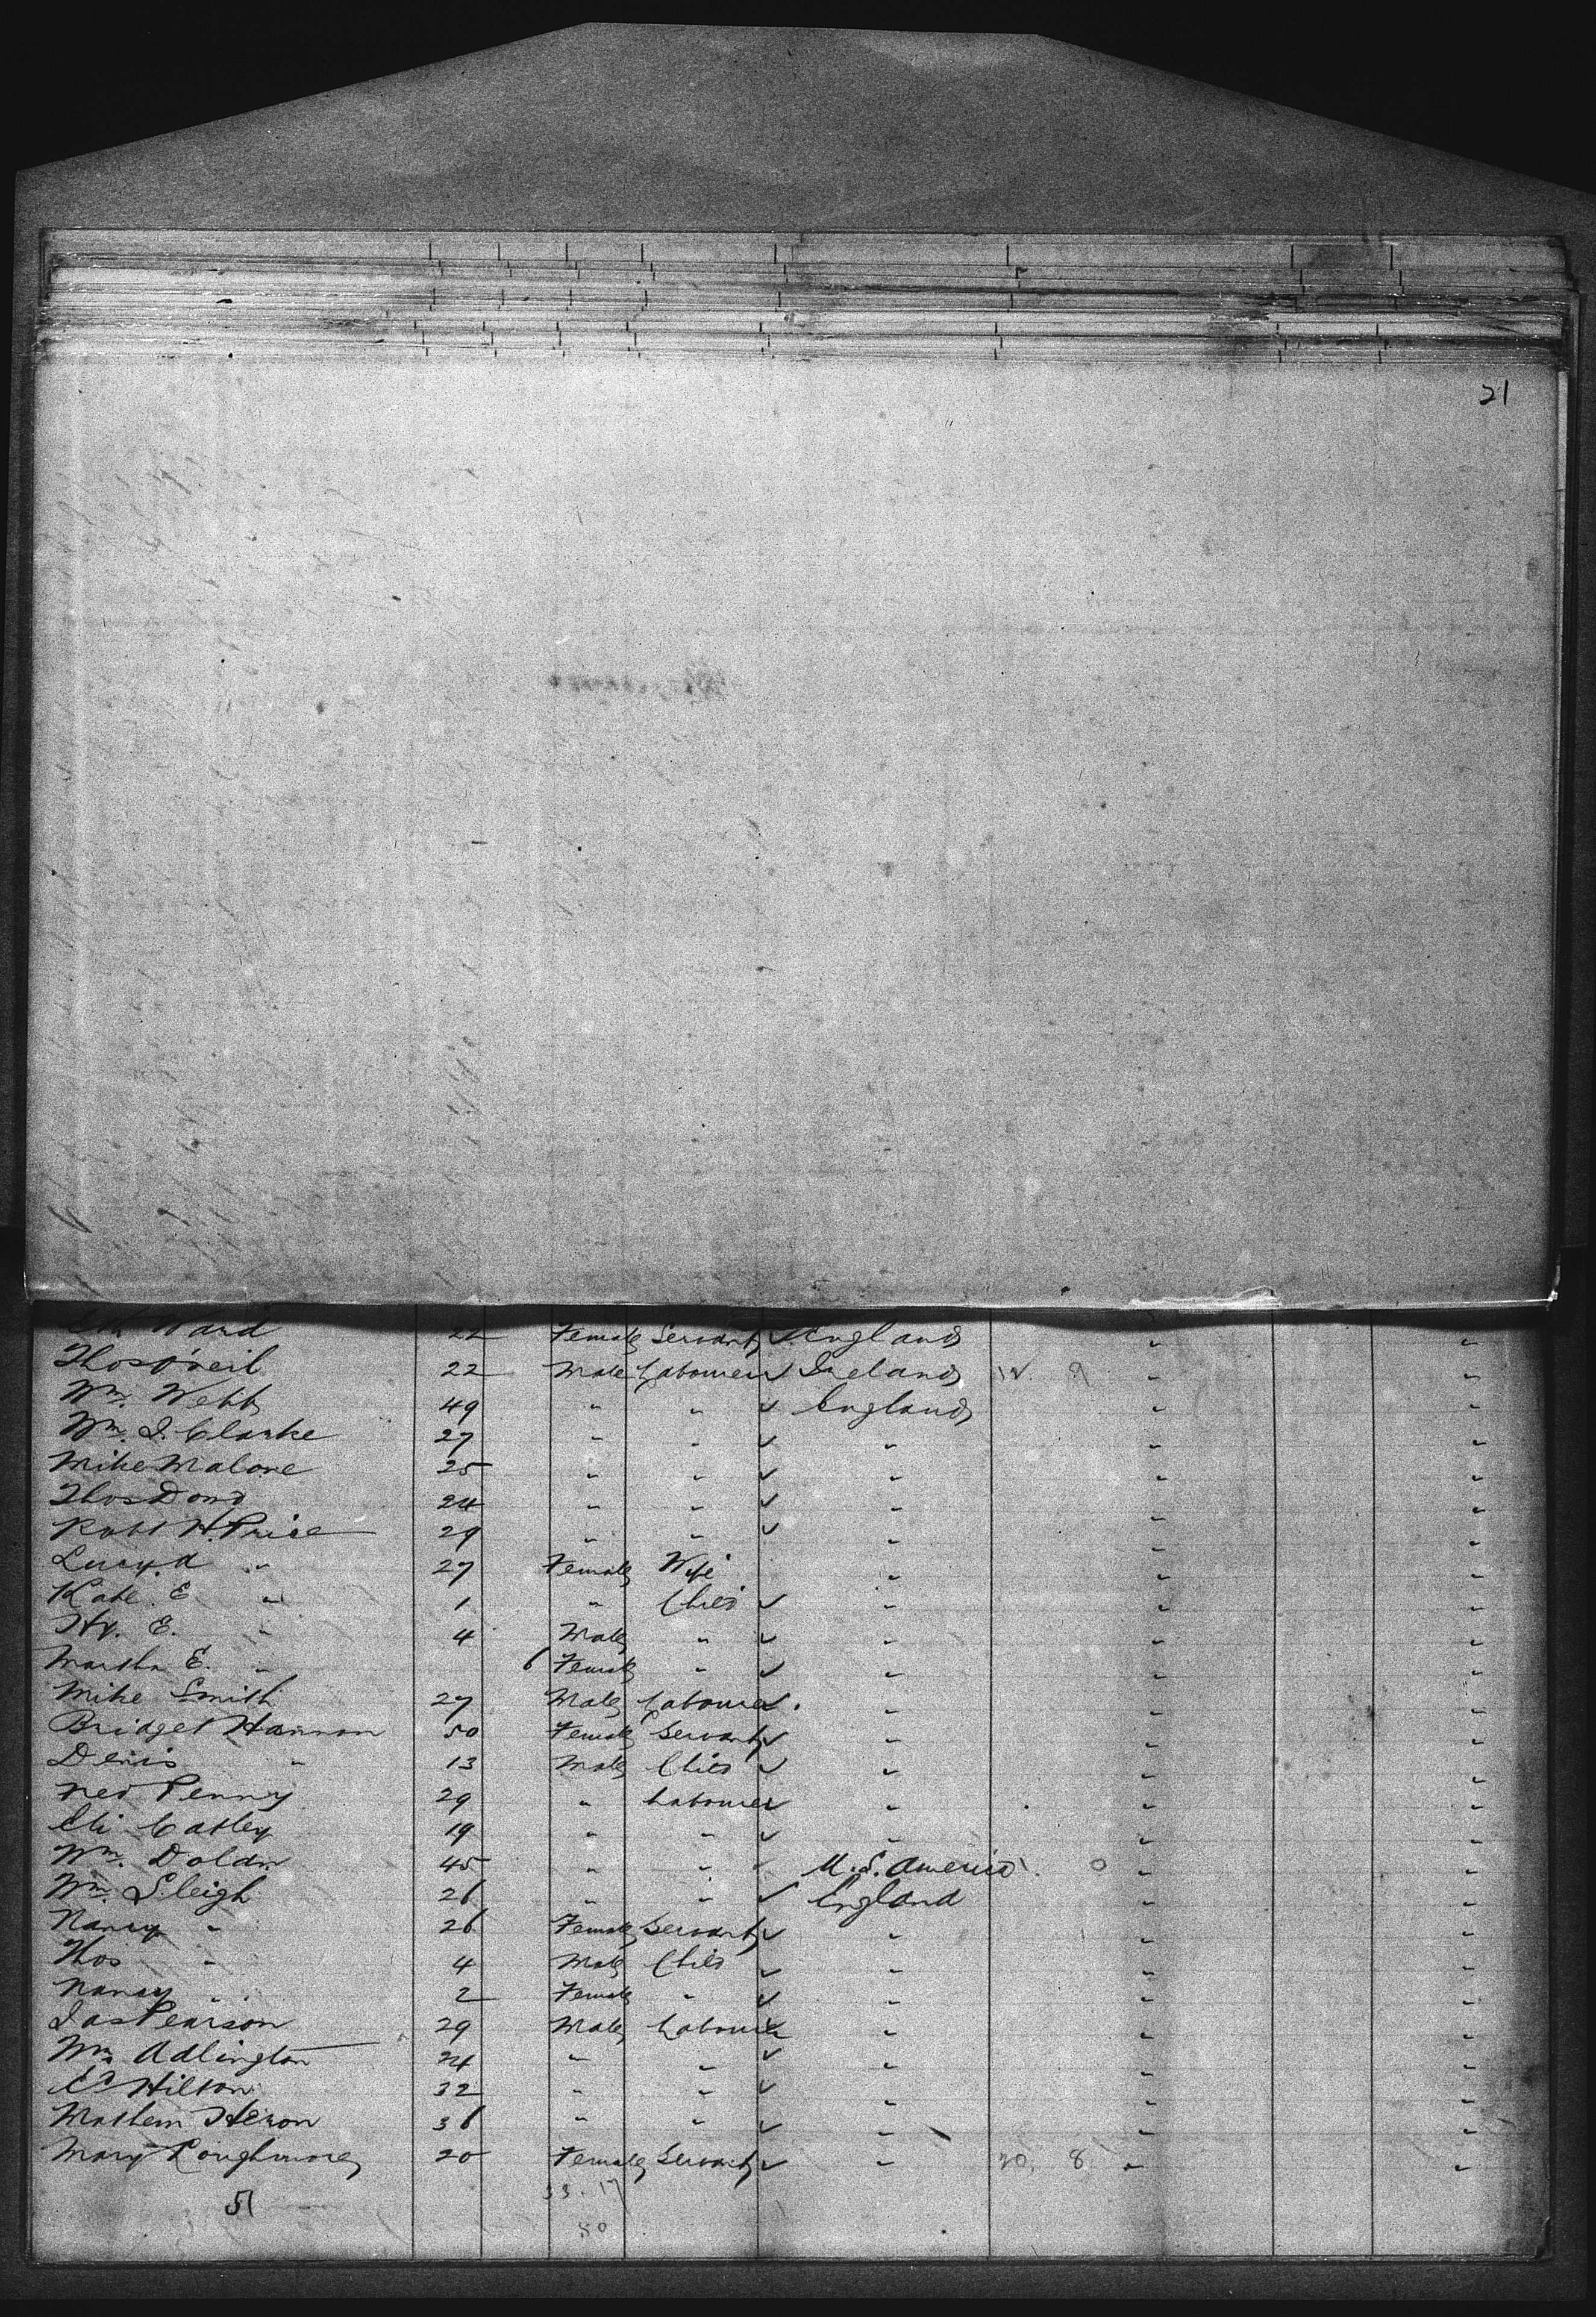 21
Ward 22 Female Servant ✓ England " "
Thos O'neil 22 Male Labourer ✓ Ireland 12. 9 " "
Wm. Webb 49 " " ✓ England " "
Wm. J. Clarke 27 " " ✓ " " "
Mike Malone 25 " " ✓ " " "
Thos Dond 24 " " ✓ " " "
Robt H. Price 29 " " ✓ " " "
Lucy. A " 27 Female Wife " " "
Kate. E. " 1 " Child ✓ " " "
Hy. E. " 4 Male " ✓ " " "
Martha E. " 6 Female " ✓ " " "
Mike Smith 27 Male Labourer ✓ " " "
Bridget Hannon 50 Female Servant ✓ " " "
Denis " 13 Male Child ✓ " " "
Ned Penny 29 " Labourer ✓ " " "
Eli Catley 19 " " ✓ " " "
Wm. Doldn 45 " " U.S. America 1. 0 "
Wm. Sleigh 26 " " ✓ England " "
Nancy " 26 Female Servant ✓ " " "
Thos " 4 Male Child ✓ " " "
Nancy " 2 Female " ✓ " " "
Jas Pearson 29 Male Labourer ✓ " " "
Wm Adlington 24 " " ✓ " " "
Ed Hilton 32 " " ✓ " " "
Mathew Heron 36 " " ✓ " " "
Mary 20 Female Servant ✓ " 20. 8 " "
51 33.17
50